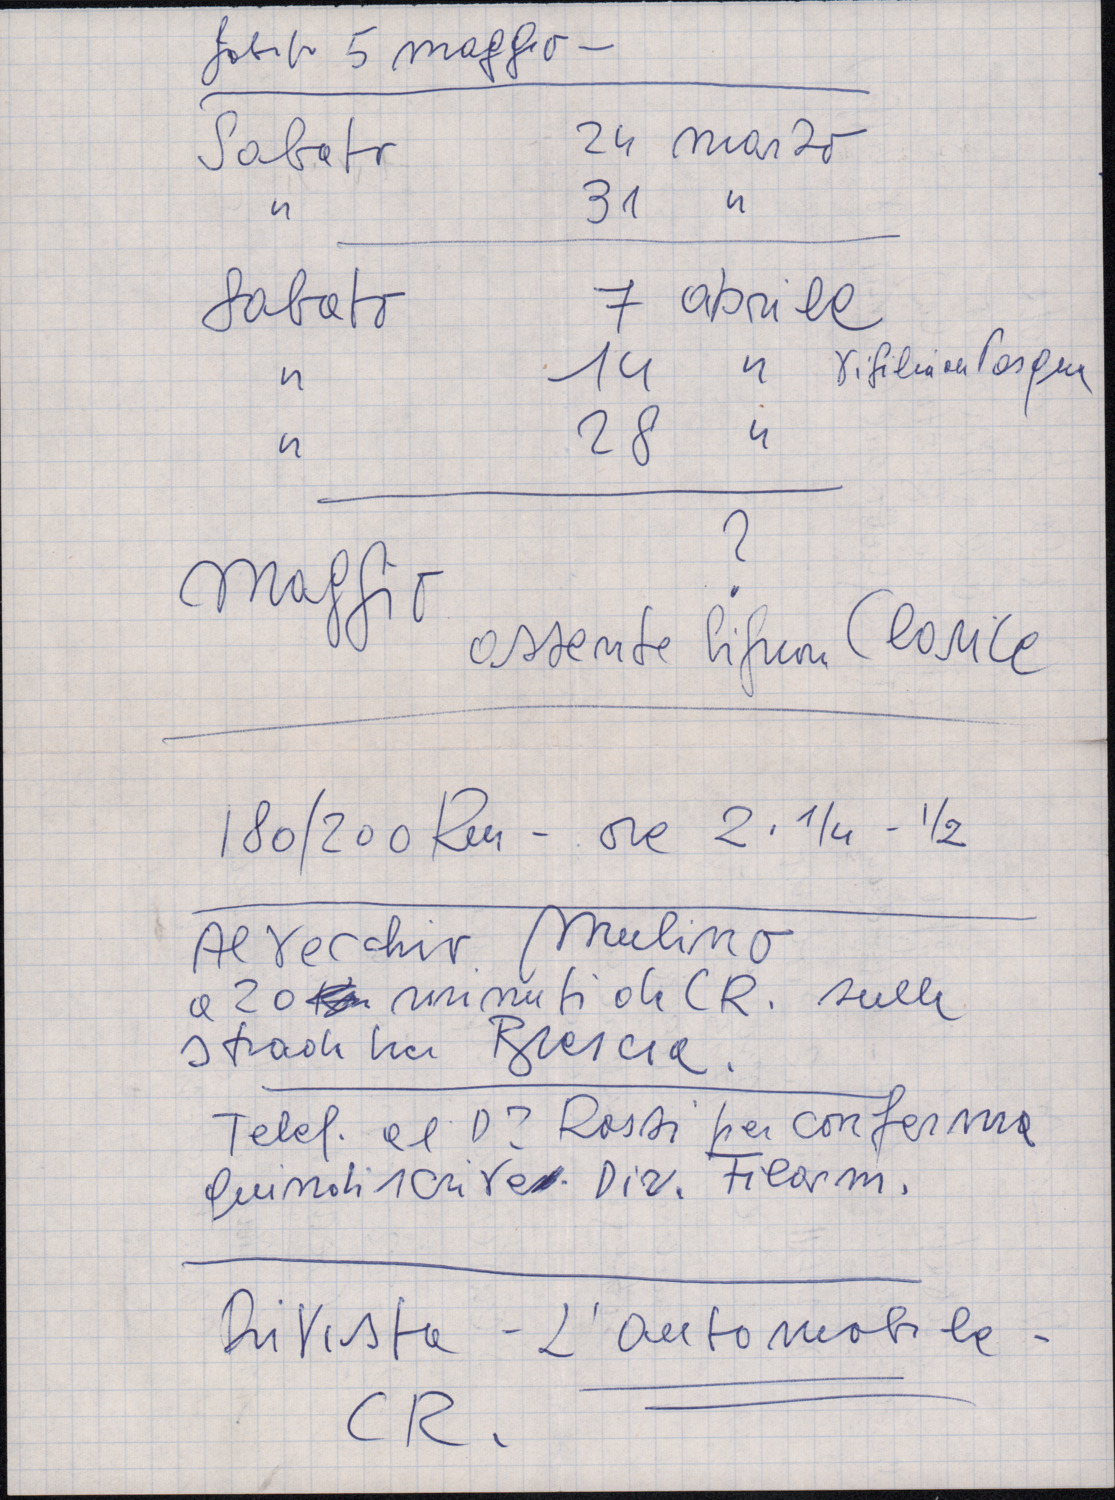 Sabato 5 maggio –
Sabato 24 marzo
" 31 "
Sabato 7 aprile
" 14 " Vigilia Pasqua
" 28 "
?
Maggio
assente Clarice
180/200 Km – ore 2. 1/4 – 1/2
Al Vecchio Mulino
a 20 minuti da CR. sulla
strada per Brescia.
Telef. al D? Rossi per conferma
quindi scrive. Dir. Filarm.
Rivista – L'automobile –
CR.